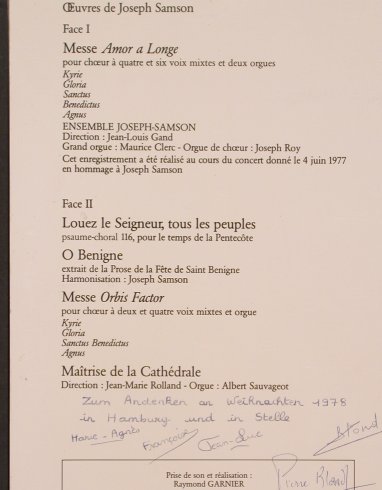 Œuvres de Joseph Samson
Face I
Messe Amor a Longe
pour chœur à quatre et six voix mixtes et deux orgues
Kyrie
Gloria
Sanctus
Benedictus
Agnus
ENSEMBLE JOSEPH-SAMSON
Direction : Jean-Louis Gand
Grand orgue : Maurice Clerc - Orgue de chœur : Joseph Roy
Cet enregistrement a été réalisé au cours du concert donné le 4 juin 1977
en hommage à Joseph Samson
Face II
Louez le Seigneur, tous les peuples
psaume-choral 116, pour le temps de la Pentecôte
O Benigne
extrait de la Prose de la Fête de Saint Benigne
Harmonisation : Joseph Samson
Messe Orbis Factor
pour chœur à deux et quatre voix mixtes et orgue
Kyrie
Gloria
Sanctus Benedictus
Agnus
Maîtrise de la Cathédrale
Direction : Jean-Marie Rolland - Orgue : Albert Sauvageot
Zum Andenken an Weihnachten 1978
in Hamburg und in Stelle
Marie-Agnès François Jean-Luc
Prise de son et réalisation :
Raymond GARNIER
Pierre